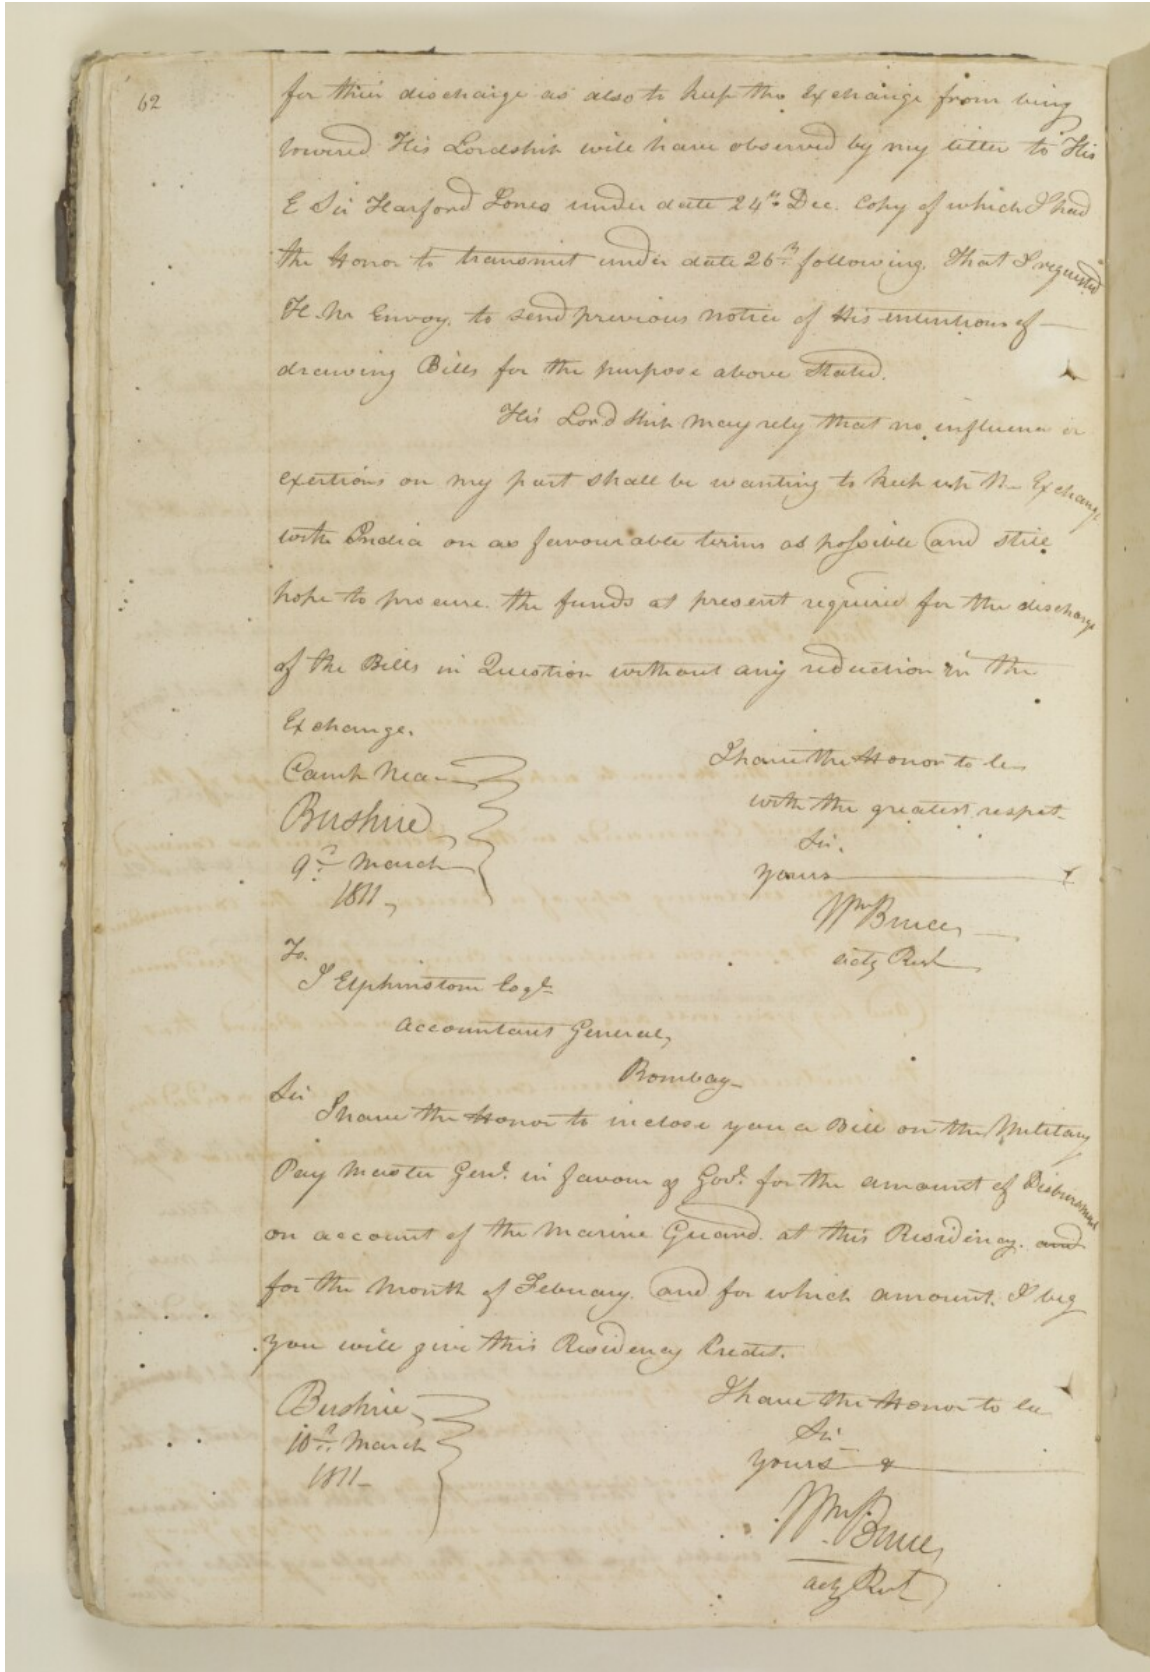 62
for their discharge as also to keep the exchange from being
lowered. His Lordship will have observed by my letter to His
E Sir Harford Jones under date 24th Dec. Copy of which I had
the Honor to transmit under date 26th following. That I requested
H. M. Envoy. to send previous notice of His intentions of
drawing Bills for the purpose above Stated.
His Lordship may rely that no influence or
exertions on my part shall be wanting to keep up the Exchange
with India on as favourable terms as possible and still
hope to procure the funds at present required for the discharge
of the Bills in Question without any reduction in the
Exchange.
I have the Honor to be
with the greatest respet
Sir.
yours &
Wm Bruce
actg Rest
Camp Near
Bushire
9th March
1811
To.
J Elphinstone Esqr
Accountant General,
Bombay
Sir
I have the Honor to inclose you a Bill on the Military
Pay Master Genl. in favour of Govt. for the amount of Disbursment
on account of the Marine Guard. at this Residency. and
for the Month of February. and for which amount. I beg
you will give this Residency Credit.
Bushire
10th March
1811
I have the Honor to be
Sir
yours &
Wm Bruce
actg Rest